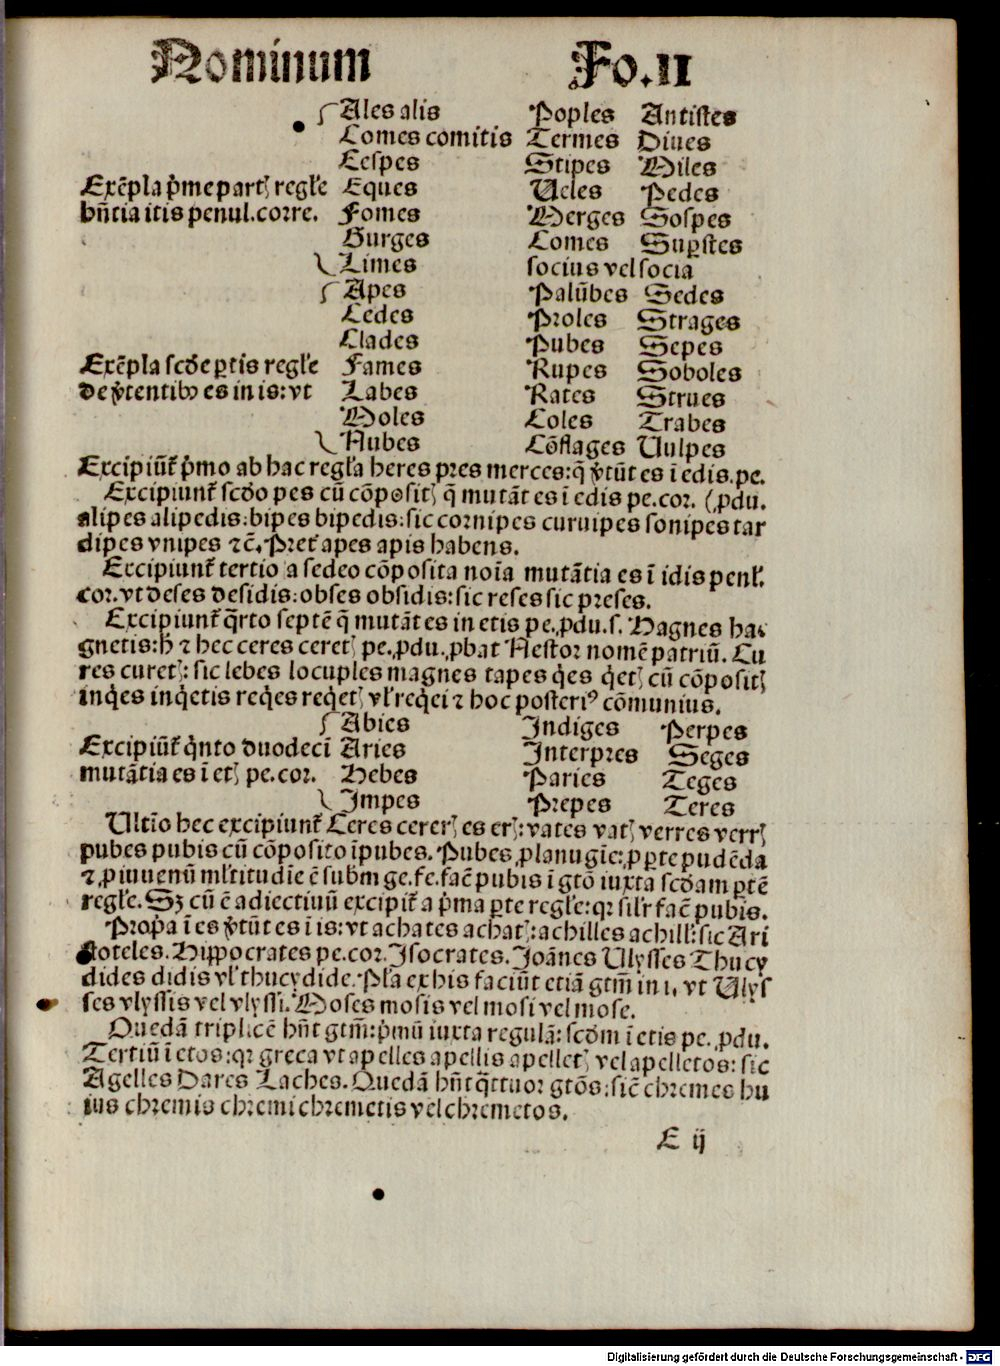 Nominum Fo.II
Ales alis Poples Antistes
Comes comitis Termes Diues
Cespes Stipes Miles
Exẽpla p̃me partꝭ regłe Eques Ueles Pedes
bñtia itis penul.corre. Fomes Merges Sospes
Gurges Comes Suꝑstes
Limes socius vel socia
Apes Palũbes Sedes
Cedes Proles Strages
Clades Pubes Sepes
Exẽpla scd̃e ꝑtis regłe Fames Rupes Soboles
de v̓tentibꝰ es in is: vt Labes Rates Strues
Moles Coles Trabes
Nubes Cõflages Uulpes
Excipiũt̃ p̃mo ab hac regła heres pres merces: q̃ v̓tũt es ĩ edis.pe.
Excipiunt̃ scd̃o pes cũ cõpositꝭ q̃ mutãt es ĩ edis pe.cor. (ꝓdu.
alipes alipedis: bipes bipedis: sic cornipes curuipes sonipes tar
dipes vnipes ⁊c̃. Preť apes apis habens.
Excipiunt̃ tertio a sedeo cõposita noĩa mutãtia es ĩ idis penł.
cor. vt deses desidis: obses obsidis: sic reses sic preses.
Excipiunt̃ q̃rto septẽ q̃ mutãt es in etis pe.ꝓdu.s. Magnes ma
gnetis: h̃ ⁊ hec ceres ceretꝭ pe.ꝓdu. ꝓbat Nestor nomẽ patriũ. Cu
res curetꝭ: sic lebes locuples magnes tapes q̃es q̃etꝭ cũ cõpositꝭ
inq̃es inq̃etis req̃es req̃etꝭ vł req̃ei ⁊ hoc posteriꝰ cõmunius.
Abies Indiges Perpes
Excipiũt̃ q̃nto duodecĩ Aries Interpres Seges
mutãtia es ĩ etꝭ pe.cor. Hebes Paries Teges
Impes Prepes Teres
Ultĩo hec excipiunt̃ Ceres cererꝭ es erꝭ: vates vatꝭ verres verrꝭ
pubes pubis cũ cõposito ĩpubes. Pubes ꝓ lanugĩe: ꝓ ꝑte pudẽda
⁊ ꝓ iuuenũ mľtitudĩe ẽ subm̃ ge.fe. faẽ pubis ĩ gtõ iuxta scd̃am ꝑtẽ
regłe. Sꝫ cũ ẽ adiectiuũ excipiť a p̃ma ꝑte regłe: qꝛ siľr faẽ pubis.
Prop̃a ĩ es v̓tũt es ĩ is: vt achates achatꝭ: achilles achillꝭ: sic Ari
stoteles. Hippocrates pe.cor. Isocrates. Joãnes Ulysses Thucy
dides didis vł thucydide. Pľa ex his faciũt etiã gtm̃ in i, vt Ulys
ses vlyssis vel vlyssi. Moses mosis vel mosi vel mose.
Quedã triplicẽ hñt gtm̃: p̃mũ iuxta regulã: scd̃m ĩ etis pe.ꝓdu.
Tertiũ ĩ etos: qꝛ greca vt apelles apellis apelletꝭ vel apelletos: sic
Agelles Dares Laches. Quedã hñt q̃ttuor gtõs: sic̃ chremes hu
ius chremis chremi chremetis vel chremetos.
E ij
Digitalisierung gefördert durch die Deutsche Forschungsgemeinschaft - DFG